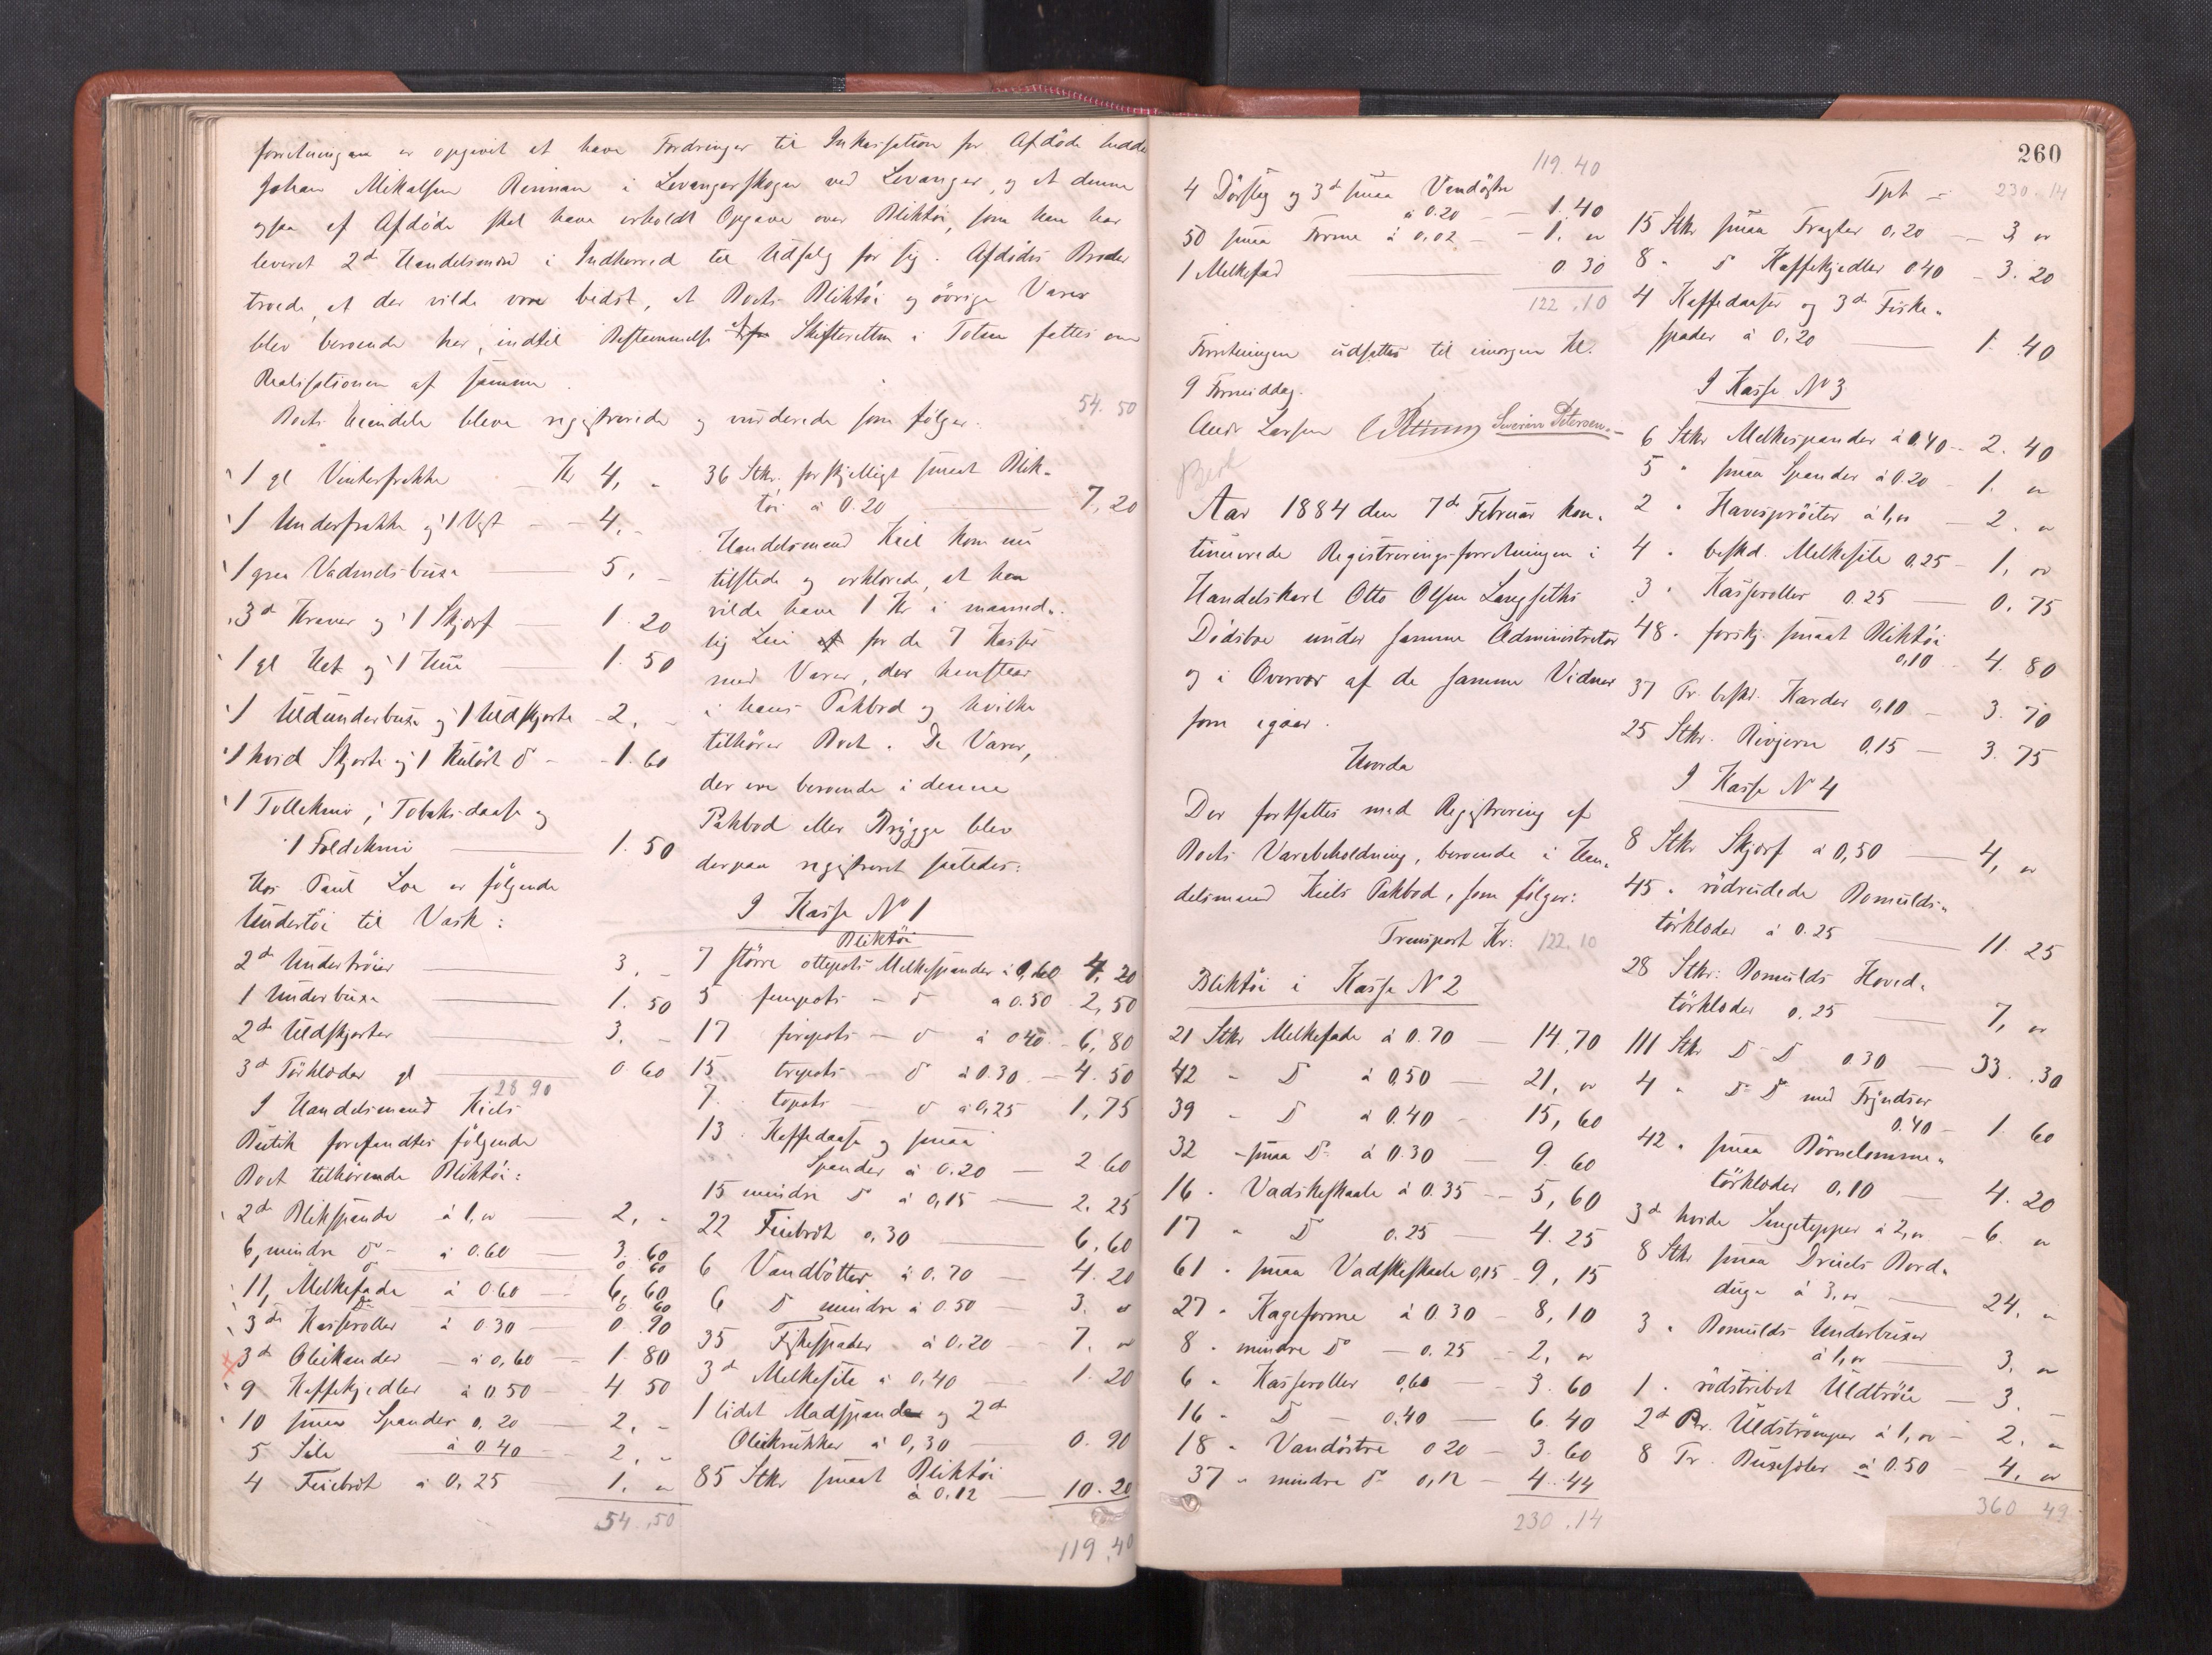 forretningen er opgivet at have Fordringer til Inkassation for Afdøde
Johan Mikalsen Rinnan i Levangerskogen ved Levanger, og at denne
ogsaa af Afdøde skal have erholdt Opgave over Bliktøi, som han har
leveret 2de Handelsmænd i Indherred til Udsalg for sig. Afdødes Broder
troede, at det vilde være bedst, at Boets Bliktøi og øvrige Varer
blev beroende her, indtil Bestemmelse af Skifteretten i Toten fattes om
Realisationen af samme.
Boets Eiendele bleve registrerede og vurderede som følger.
1 gl Vinterfrakke Kr 4, "
1 Underfrakke og 1 Vest 4. -
1 graa Vadmelsbuxe 5, -
3de Kraver og 1 Skjærf 1. 20
1 gl Hat og 1 Hue 1. 50
1 Uldunderbuxe og 1 Uldskjorte 2, -
1 hvid Skjorte og 1 kulørt do 1. 60
1 Tollekniv, 1 Tobaksdaase og
1 Foldekniv 1. 50
Hos Paul Loe er følgende
Undertøi til Vask:
2de Undertrøier 3, -
1 Underbuxe 1. 50
2de Uldskjorter 3, -
3de Tørklæder gl 0 60
28 90
I Handelsmand Kiels
Butik forefandtes følgende
Boet tilhørende Bliktøi:
2de Blikspande á 1,00 2, -
6, mindre do á 0.60 3. 60
11, Melkefade á 0.60 6, 60
3de Kasseroller á 0.30 0. 90
3de Oliekander á 0,60 1. 80
9 Kaffekjedler á 0.50 4 50
10 smaa Spander 0,20 2, -
5 Sile á 0.40 2, -
4 Feiebrét á 0,25 1, "
54.,50
54. 50
36 Stkr. forskjelligt smaat Blik-
tøi á 0.20 7,20
Handelsmand Kiel kom nu
tilstede og erklærede, at han
vilde have 1 Kr i maaned-
lig Leie af for de 7 Kasser
med Varer, der henstaar
i hans Pakbod og hvilke
tilhører Boet. De Varer,
der ere beroende i denne
Pakbod eller Brygge blev
derpaa registreret saaledes:
I Kasse No 1
Bliktøi
7 større ottepots Melkespander á 0,60 4, 20
5 fempots - do á 0.50 2,50
17 firepots - do á 0.40 6,80
15 trepots - do á 0.30 4. 50
7. topots - do á 0,25 1,75
13. Kaffedaase og smaa
Spander á 0.20 2 60
15 mindre do á 0,15 2. 25
22 Feiebrét 0,30 6,60
6 Vandbøtter á 0.70 4. 20
6 do mindre á 0.50 3. "
35 Fiskespader á 0,20 7. "
3de Melkesile á 0,40 1. 20
1 lidet Madspand og 2de
Oliekrukker á 0,30 0. 90
85 Stkr smaat Bliktøi
á 0.12 10. 20
119.40
260
119.40
4 Dørslag og 3de smaa Vandøstre
á 0.20 1.40
50 smaa Forme á 0,02 1. "
1 Melkefad 0 30
122.10
Forretningen udsattes til imorgen Kl.
9 Formiddag.
Andr Larsen Severin Petersen
Aar 1884 den 7de Februar kon-
tinuerede Registreringsforretningen i
Handelskarl Otto Olsen Langseths
Dødsbo under samme Administrator
og i Overvær af de samme Vidner
som igaar.
Hvorda
Der fortsattes med Registrering af
Boets Varebeholdning, beroende i Han-
delsmand Kiels Pakbod, som følger:
Transport Kr: 122.10
Bliktøi i Kasse No 2
21 Stkr Melkefade á 0.70 14.,70
42 - Do á 0,50 21, "
39 Do á 0.40 15,60
32 - smaa Do á 0.30 9. 60
16 - Vadskeskaale á 0.35 5,60
17 " Do 0.25 4. 25
61 - smaa Vadskeskaale 0,15 9,15
27 - Kageforme á 0.30 8,10
8 - mindre Do 0.25 2, "
6 - Kasseroller 0,60 3. 60
16 - Do 0.40 6. 40
18 - Vandøstre 0 20 3. 60
37 - mindre do 0,12 4. 44
230.14
Tpt 230.14
15 Stkr smaa Tragter 0,20 3, "
8 " Do Kaffekjedler 0.40 3. 20
4 Kaffedaaser og 3de Fiske-
spader á 0,20 1. 40
I Kasse No 3
6 Stkr Melkespander á 0,40 2. 40
5 " smaa Spander á 0.20 1. "
2 " Havesprøiter á 1,00 2. "
4 " beskd. Melkesile 0,25 1, "
3 " Kasseroller 0.25 0. 75
48 - forskj. smaat Bliktøi
0,10 4. 80
37 Pr. beskd. Karder 0,10 3. 70
25 Stkr. Rivjern 0,15 3. 75
I Kasse No 4
8 Stkr Skjærf á 0,50 4, "
45 " rødrudede Bomulds-
tørklæder á 0.25 11. 25
28 Stkr. Bomulds Hoved-
tørklæder 0.25 7, "
111 Stkr Do Do 0.30 33.30
4 " Do Do med Fryndser
0.40 1. 60
42 " smaa Børnelomme-
tørklæder 0,10 4. 20
3de hvide Sengetepper á 2,00 6. "
8 Stkr smaa Dreiels Bord-
duge á 3,00 24, "
3 " Bomulds Underbuxer
á 1,00 3, "
1 " rødstribet Uldtrøie 3. -
2de Pr. Uldstrømper á 1,00 2, "
8 Pr. Buxesæler á 0.50 4, "
360 49